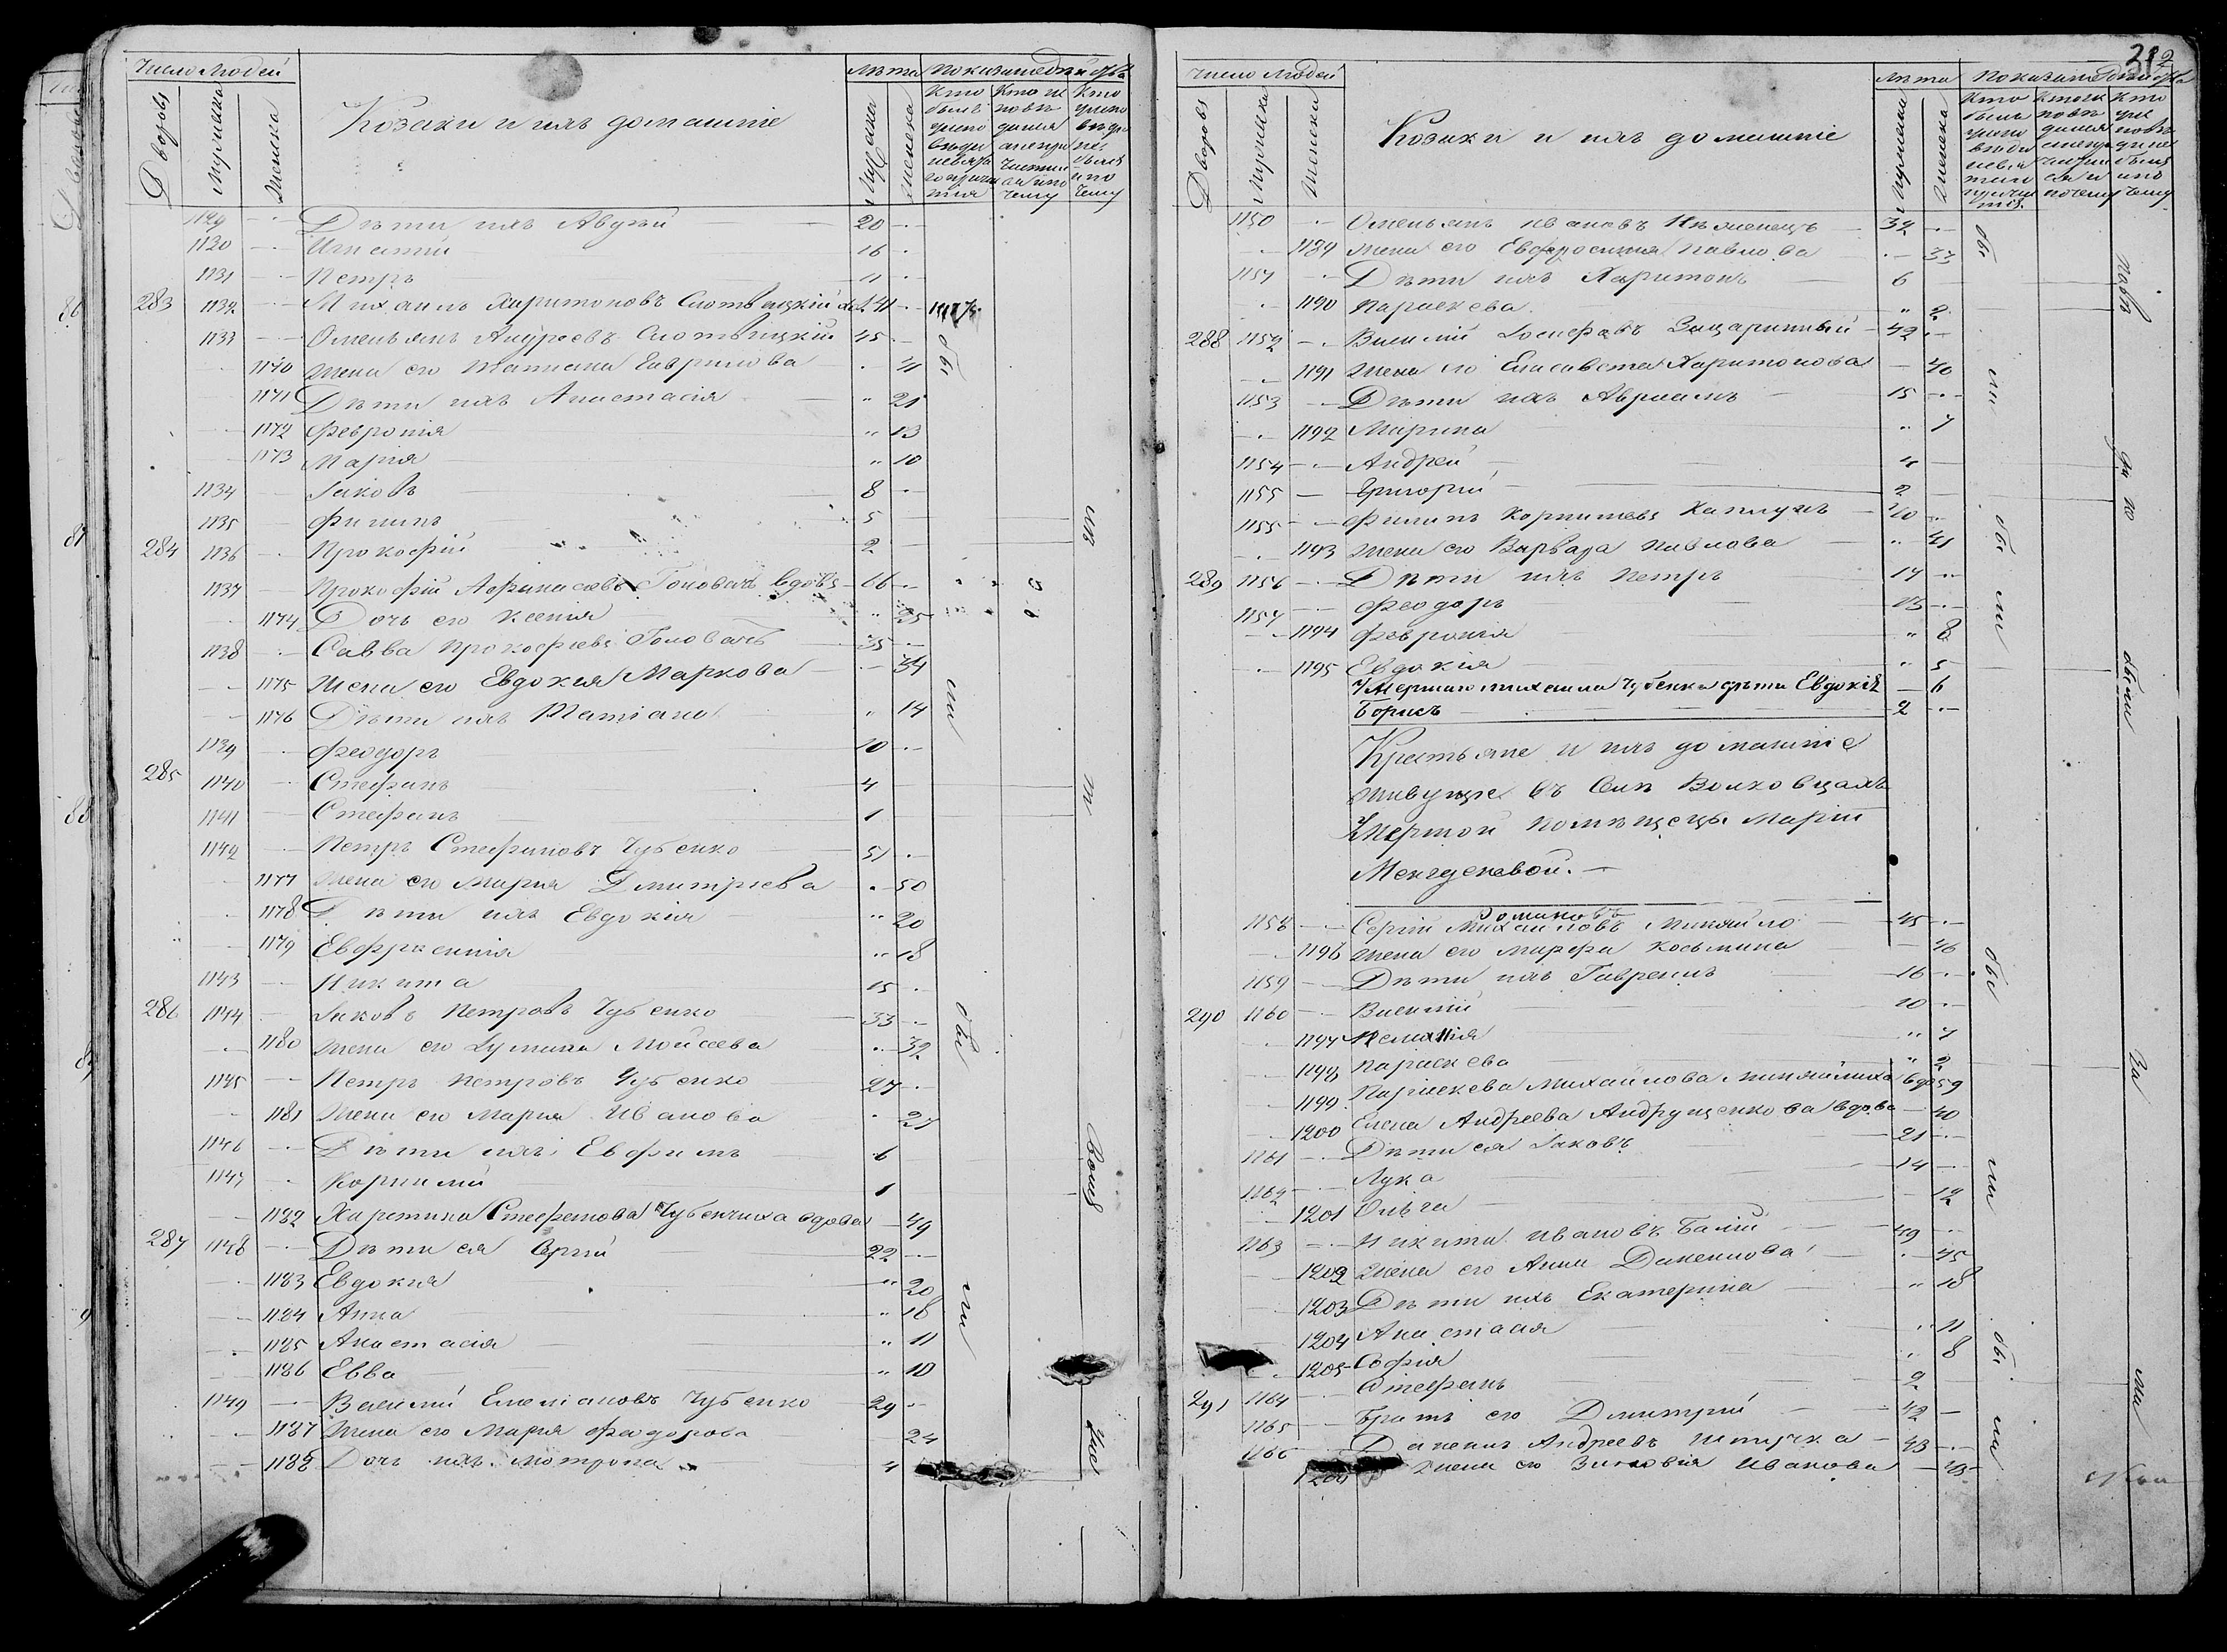 Число людей
Дворовъ
Мужеска
Женска
Козаки и ихъ домашніе
Лѣта
Мужеска
Женска
Показаніе дѣйства
Кто былъ у исповѣди и св. причастія
Кто исповѣдался а не причастился и почему
Кто у исповѣди не былъ и почему
1129 Дѣти ихъ Авдѣй 20
1130 Игнатій 16
1131 Петръ 11
283 1132 Михаилъ Харитоновъ 41
1133 Омельянъ Андреевъ 45
1170 жена его Татіана Гаврилова 41
1171 Дѣти ихъ Анастасія 21
1172 Февронія 13
1173 Марія 10
1134 Іаковъ 8
1135 Филипъ 5
284 1136 Прокофій 2
1137 Прокофій Афанасіевъ Головачъ вдовъ 66
1174 Дочь его Ксенія 25
1138 Савва Прокофіевъ Головачъ 35
1175 Жена его Евдокія Маркова 34
1176 Дѣти ихъ Татіана 14
1139 Феодоръ 10
285 1140 Стефанъ 4
1141 Стефанъ 1
1142 Петръ Стефановъ Чубенко 51
1177 жена его Марія Дмитріева 50
1178 Дѣти ихъ Евдокія 20
1179 Евфросинія 18
1143 Никита 15
286 1144 Іаковъ Петровъ Чубенко 33
1180 жена его Мойсеева 32
1145 Петръ Петровъ Чубенко 27
1181 жена его Марія Иванова 27
1146 Дѣти ихъ Евфимъ 6
1147 Корнилій 1
1182 Харитина Стефанова Чубенчиха вдова 49
287 1148 Дѣти ея Сергій 22
1183 Евдокія 20
1184 Анна 18
1185 Анастасія 11
1186 Евва 10
1149 Василій Емеліановъ Чубенко 29
1187 жена его Марія Федорова 24
1188 Дочь ихъ Мотрона 4
были
были
Число людей
Дворовъ
Мужеска
Женска
Козаки и ихъ домашніе
Лѣта
Мужеска
Женска
1150 Омельянъ Ивановъ Нѣженецъ 32
1189 жена его Евфросинія Павлова 33
1151 Дѣти ихъ Харитонъ 6
1190 Параскева 2
288 1152 Василій Іосифовъ Зацаринный 42
1191 жена его Елисавета Харитонова 40
1153 Дѣти ихъ Авраамъ 15
1192 Марина 7
1154 Андрей 4
1155 Григорій 2
1155 Филипъ Корниліевъ Каплунъ 40
1193 жена его Варвара Павлова 41
289 1156 Дѣти ихъ Петръ 17
1157 Феодоръ 13
1194 Февронія 8
1195 Евдокія 5
Умершаго Михаила Чубенка дѣти Евдокія 6
Борисъ 2
Крестьяне и ихъ домашніе
живущіе въ селѣ Волковцахъ
умершой помѣщецы Маріи
Менгденовой.
Романовъ
1158 Сергій Михаиловъ Миняйло 45
1196 жена его Марфа Косьмина 46
1159 Дѣти ихъ Гавреилъ 16
290 1160 Василій 10
1197 Меланія 7
1198 Параскева 2
1199 Параскева Михаилова Миняйлиха вдо 59
1200 Елена Андреева Андрущенкова вдова 40
1161 Дѣти ея Іаковъ 21
1162 Лука 14
1201 Ольга 12
1163 Никита Ивановъ Балій 49
1202 жена его Анна Даниилова 45
1203 Дѣти ихъ Екатерина 18
1204 Анастасія 11
1205 Софія 8
291 1164 Стефанъ 2
1165 Братъ его Дмитрій 42
1166 Даніилъ Андреевъ 43
жена его Зиновія Иванова
были
были
были
были